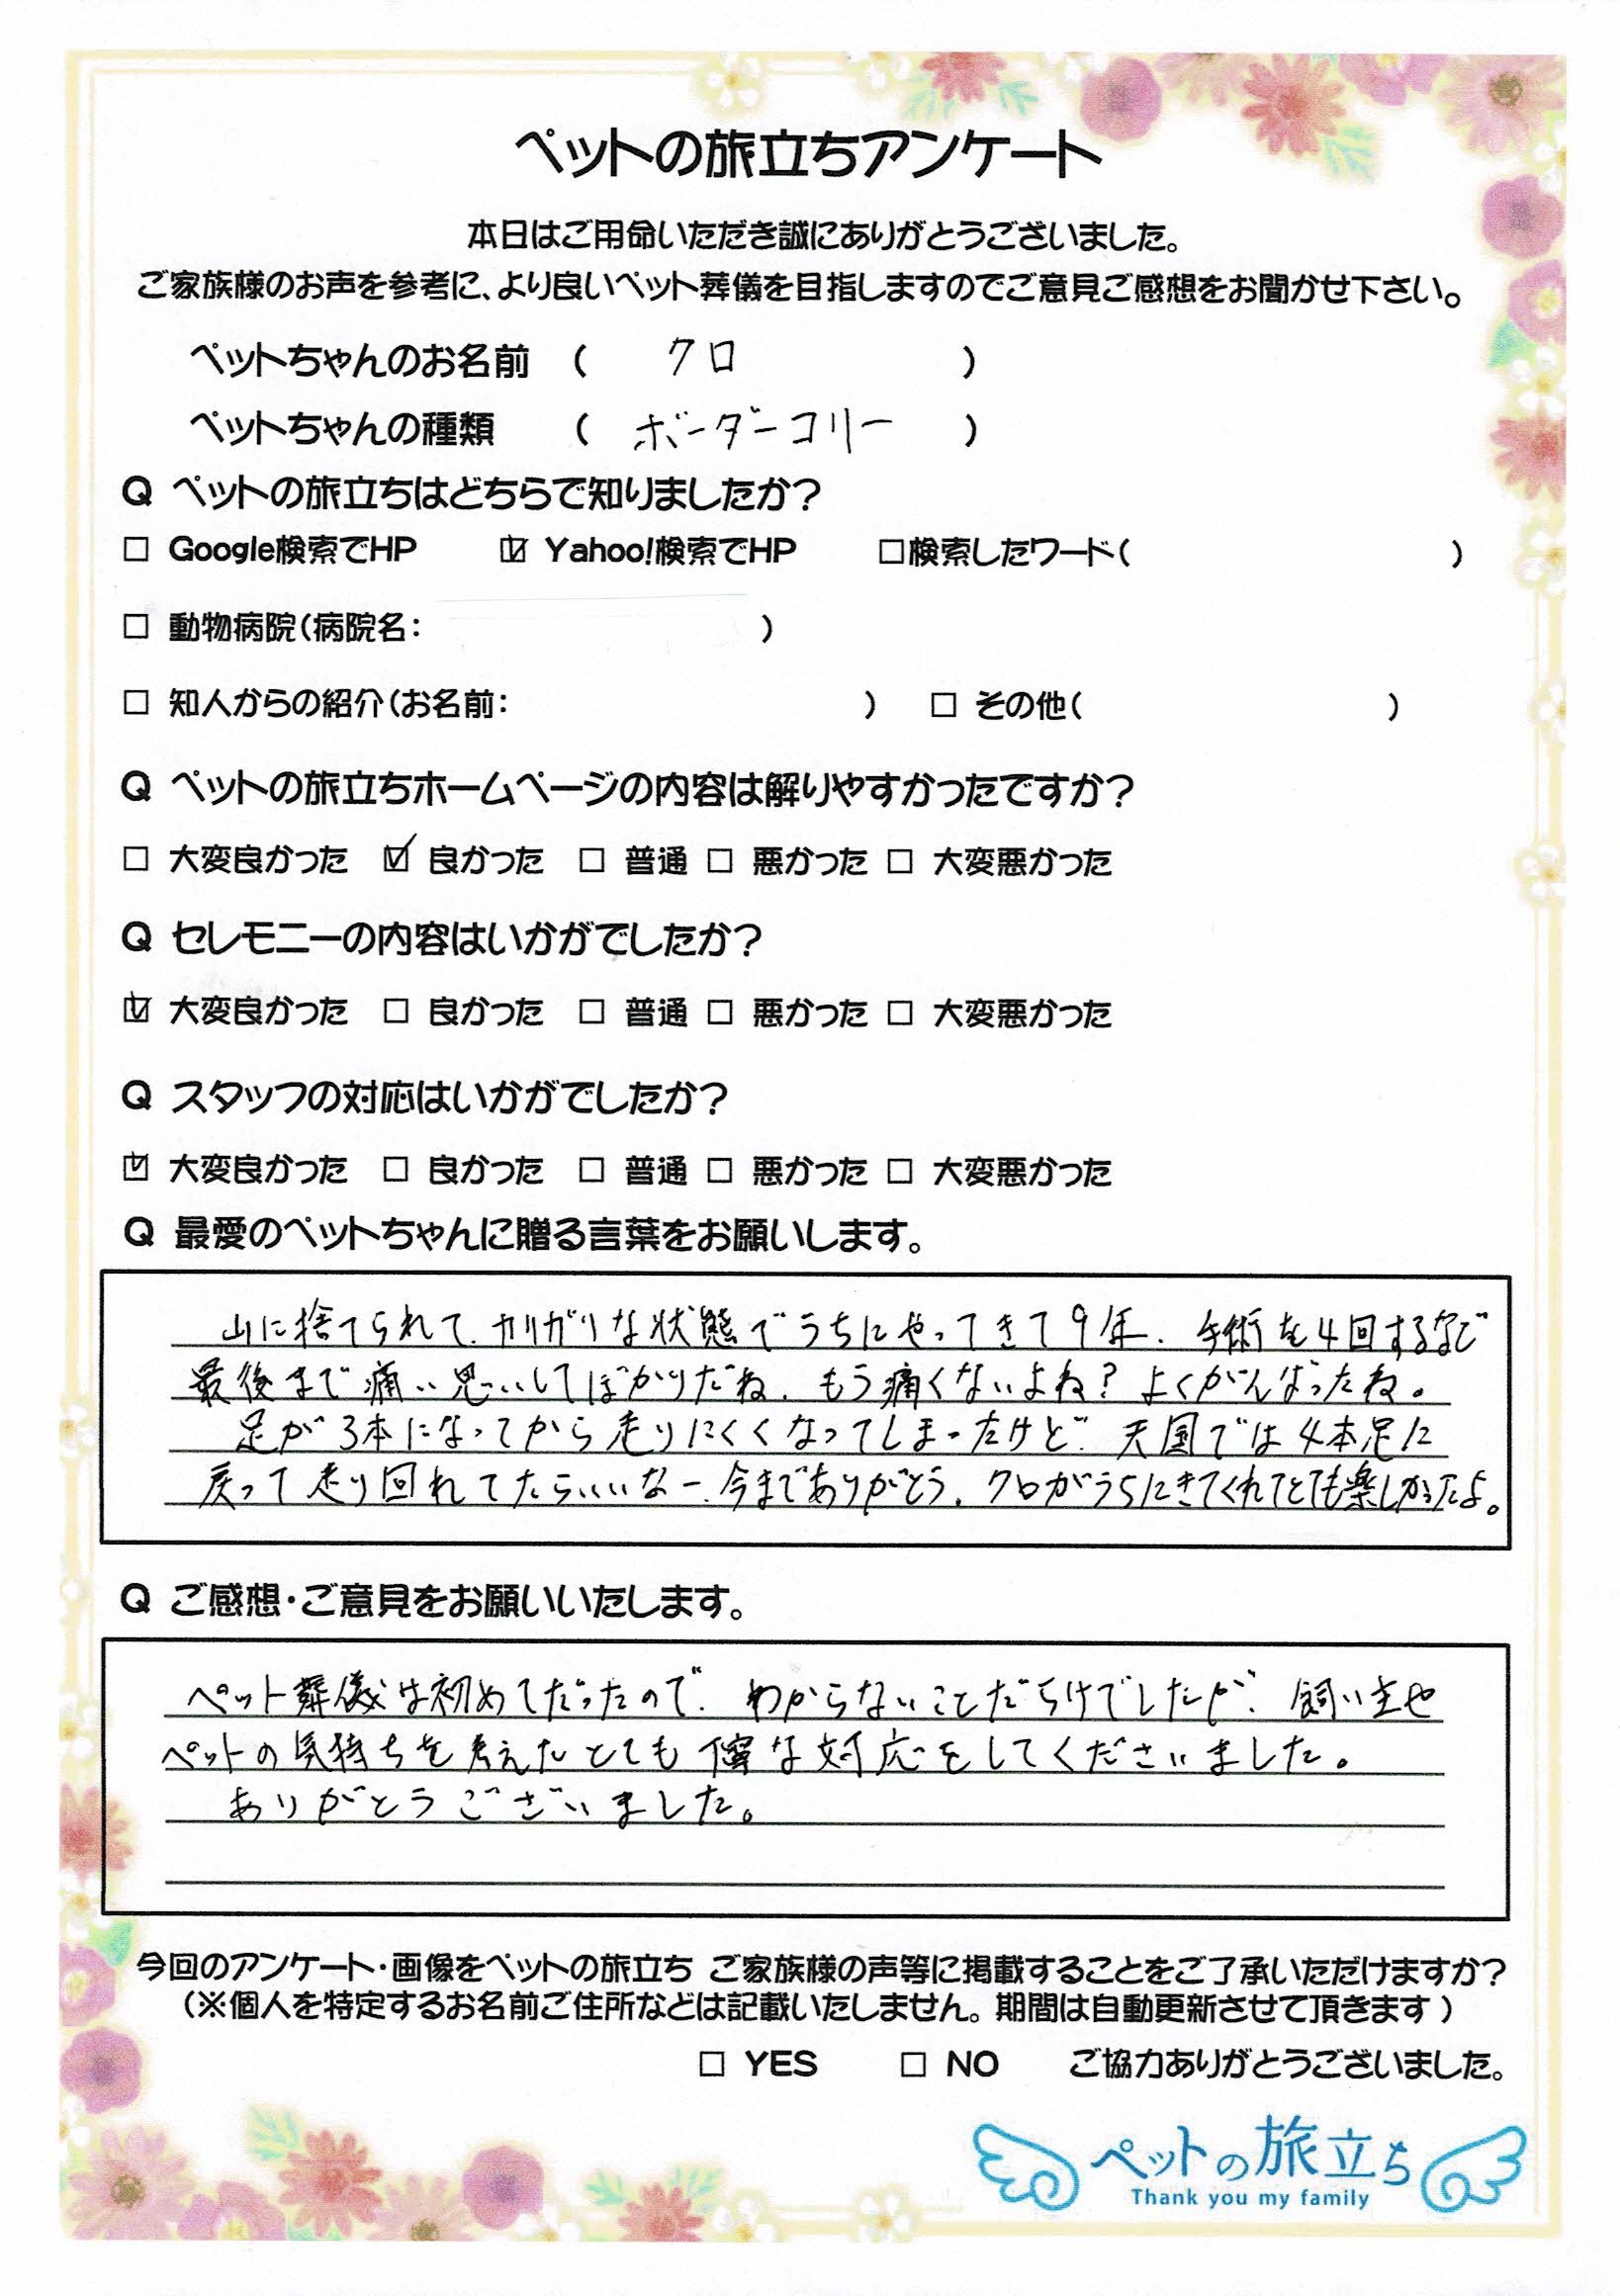 ペットの旅立ちアンケート
本日はご用命いただき誠にありがとうございました。
ご家族様のお声を参考に、より良いペット葬儀を目指しますのでご意見ご感想をお聞かせ下さい。
ペットちゃんのお名前 ( クロ )
ペットちゃんの種類 ( ボーダーコリー )
Q ペットの旅立ちはどちらで知りましたか?
□ Google検索でHP ☑ Yahoo!検索でHP □検索したワード( )
□ 動物病院(病院名: )
□ 知人からの紹介(お名前: ) □ その他( )
Q ペットの旅立ちホームページの内容は解りやすかったですか?
□ 大変良かった ☑ 良かった □ 普通 □ 悪かった □ 大変悪かった
Q セレモニーの内容はいかがでしたか?
☑ 大変良かった □ 良かった □ 普通 □ 悪かった □ 大変悪かった
Q スタッフの対応はいかがでしたか?
☑ 大変良かった □ 良かった □ 普通 □ 悪かった □ 大変悪かった
Q 最愛のペットちゃんに贈る言葉をお願いします。
山に捨てられて、ガリガリな状態でうちにやってきて9年、手術を4回するなど
最後まで痛い思いしてばかりだね、もう痛くないよね?よくがんばったね。
足が3本になってから走りにくくなってしまったけど、天国では4本足に
戻って走り回れてたらいいなー、今までありがとう、クロがうちにきてくれてとても楽しかったよ。
Q ご感想・ご意見をお願いいたします。
ペット葬儀は初めてだったので、わからないことだらけでしたが、飼い主や
ペットの気持ちを考えたとても丁寧な対応をしてくださいました。
ありがとうございました。
今回のアンケート・画像をペットの旅立ち ご家族様の声等に掲載することをご了承いただけますか?
(※個人を特定するお名前ご住所などは記載いたしません。期間は自動更新させて頂きます)
□ YES □ NO ご協力ありがとうございました。
ペットの旅立ち
Thank you my family